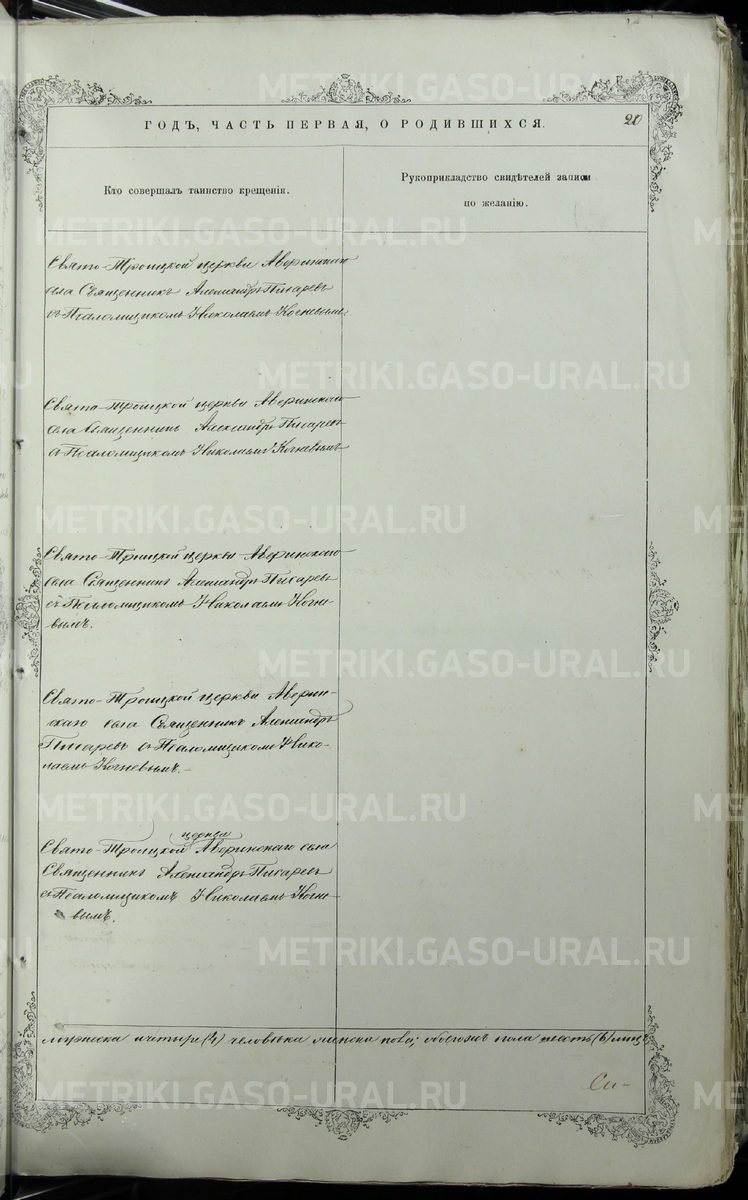 METRIKI.GASO-URAL.RU
20
ГОДЪ, ЧАСТЬ ПЕРВАЯ, О РОДИВШИХСЯ.
Кто совершалъ таинство крещенія.
Рукоприкладство свидѣтелей записи
по желанію.
Свято-Троицкой церкви Аверинскаго
села Священникъ Александръ Писаревъ
съ Псаломщикомъ Николаемъ Когневымъ
Свято-Троицкой церкви Аверинскаго
села Священникъ Александръ Писаревъ
съ Псаломщикомъ Николаемъ Когневымъ
Свято-Троицкой церкви Аверинскаго
села Священникъ Александръ Писаревъ
съ Псаломщикомъ Николаемъ Когне-
вымъ.
Свято-Троицкой церкви Аверин-
скаго села Священникъ Александръ
Писаревъ съ Псаломщикомъ Нико-
лаемъ Когневымъ.-
Свято-Троицкой церкви Аверинскаго села
Священникъ Александръ Писаревъ
съ Псаломщикомъ Николаемъ Когне-
вымъ.
(4) человѣка женска пола; обоегожъ пола шесть (6) лицъ
Си-